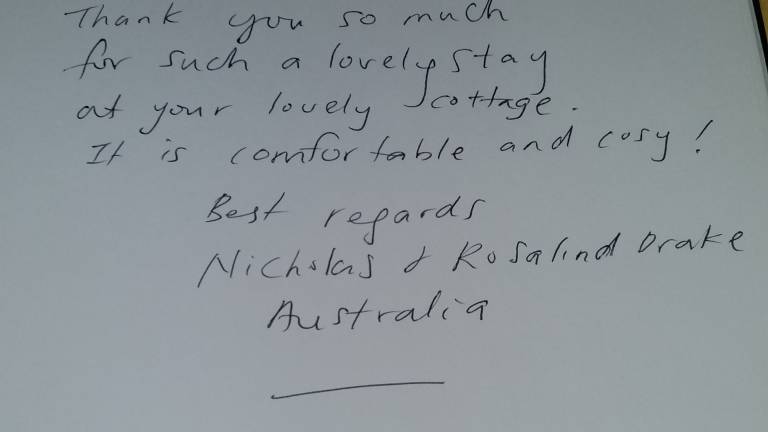 Thank you so much
for such a lovely stay
at your lovely cottage.
It is comfortable and cosy!
Best regards
Nicholas & Rosalind Drake
Australia